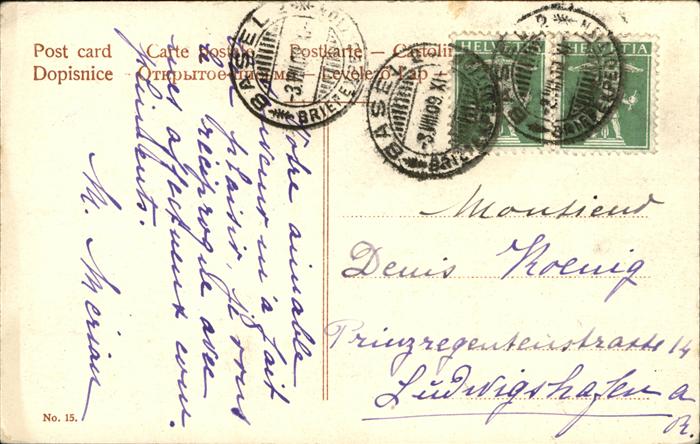 Post card — Carte postale — Postkarte —
Dopisnice — Открытое письмо — Levelező-Lap
HELVETIA
HELVETIA
BASEL
-3.VIII.09.XI
BRIEFEXP
Votre aimable
m'a fait
plaisir. Je vous
réciproque avec
mes affectueux com-
pliments.
M. Merian
Monsieur
Denis Koenig
Prinzregentenstrasse 14
Ludwigshafen a
R.
No. 15.